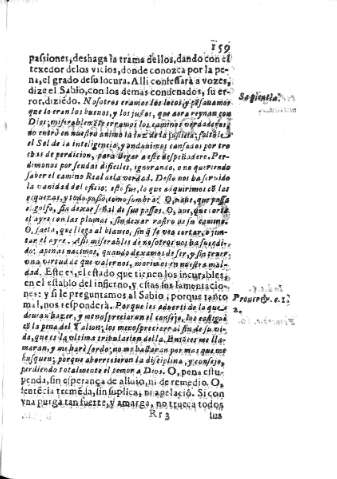 159
passiones, deshaga la trama dellos, dando con el
texedor de los vicios, donde conozca por la pe-
na, el grado de su locura. Alli confessarà a vozes,
dize el Sabio, con los demas condenados, su er-
ror, diziẽdo. Nosotros eramos los locos y pẽsauamos
que lo eran los buenos, y los justos, que aora reynan con
Dios; miserables erramos los caminos verdaderos,
no entrò en nuestro animo la luz de la justicia,
el Sol de la inteligencia, y anduuimos cansados por tro
chas de perdicion, para llegar a este despeñadero. Per-
dimonos por sendas dificiles, ignorando, o no queriendo
saber el camino Real de la verdad. Desto nos ha seruido
la vanidad del oficio: esto fue, lo que adquirimos cõ las
riquezas, y todo passò, como sombra. O, naue, que passa
el golfo, sin dexar señal de sus passos. O, aue, que corta
el ayre con las plumas, sin dexar rastro de su camino.
O, saeta, que llega al blanco, sin q̃ se vea cortar, o jun-
tar el ayre. Assi miserables de nosotros nos ha sucedi-
do, apenas nacimos, quando dexamos de ser, y sin tener
vna virtud de que valernos, morimos en nuestra mal-
dad. Este es, el estado que tienen los incurables,
en el establo del infierno, y estas sus lamentacio-
nes: y si le preguntamos al Sabio, porque tanto
mal, nos responderà. Porque les aduertí de lo que
deuian hazer, y menospreciaron el consejo,
es la pena del Talion: los menospreciarè al fin de su vi-
da, que es la vltima tribulacion della. Entõces me lla-
maràn, y me harè sordo; no me hallaràn por mas que me
busquen; porque aborrecieron la disciplina, y consejo,
perdiendo totalmente el temor a Dios. O, pena estu-
penda, sin esperança de aliuio, ni de remedio. O,
sentẽcia tremẽda, sin suplica, ni apelaciõ. Si con
vna purga tan fuerte, y amarga, no trueca todos
Rr 3 sus
Sapientia.
Prouerb. c. 1.